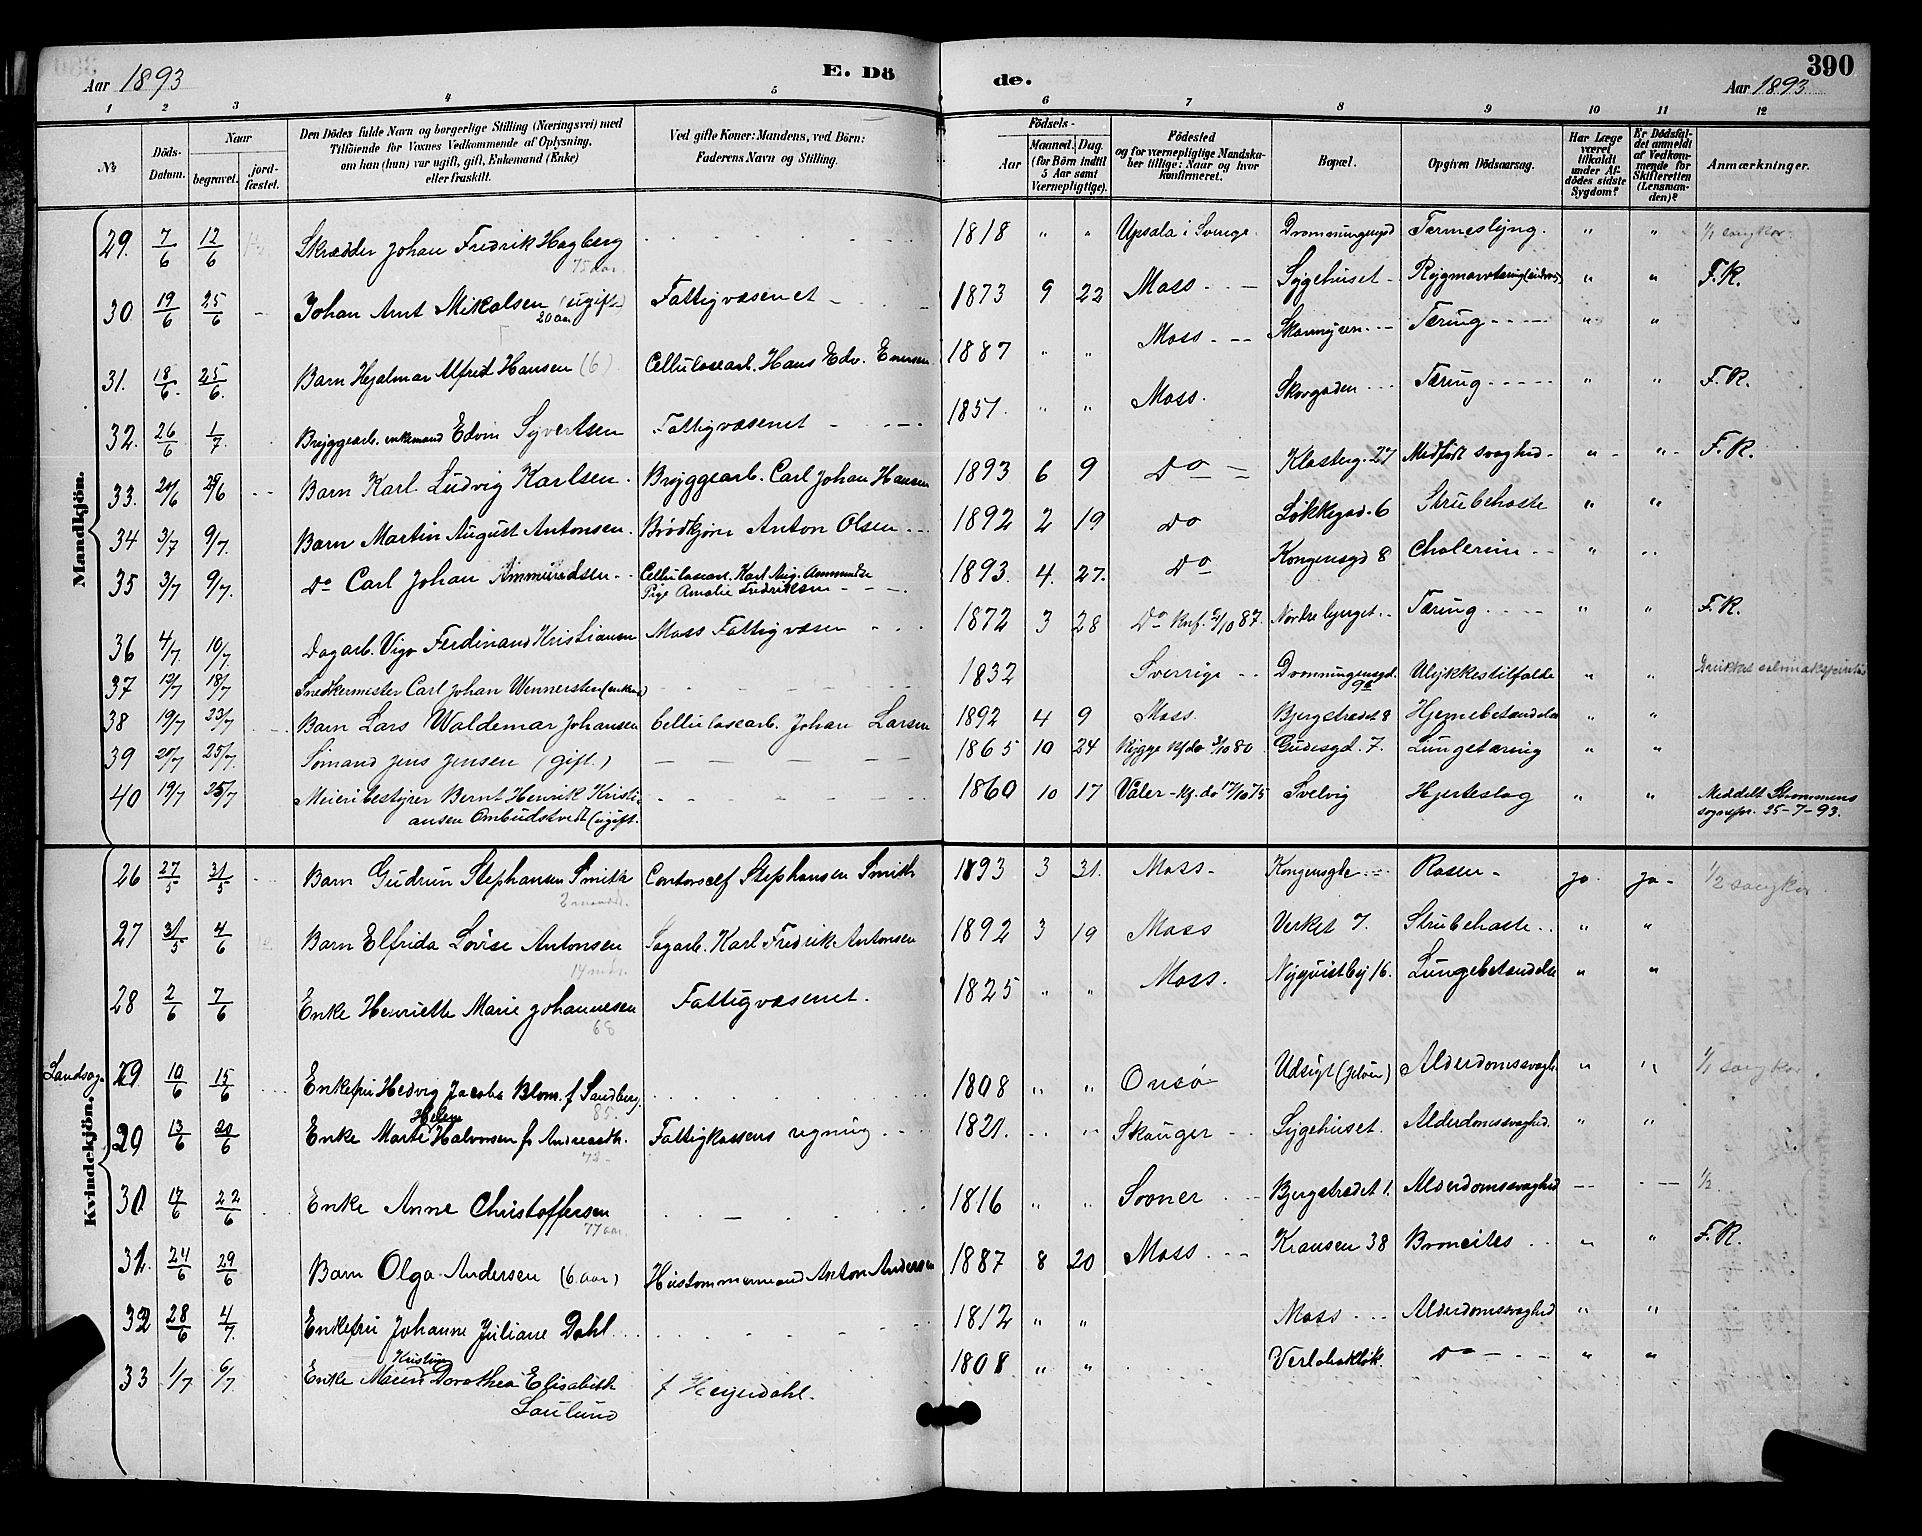 Aar 1893
E. Dö
de.
390
Aar 1893
1 2 3 4 5 6 7 8 9 10 11 12
№
Döds-Datum.
Naar
begravet.
jord-fæstet.
Den Dödes fulde Navn og borgerlige Stilling (Næringsvei) med
Tilföiende for Voxnes Vedkommende af Oplysning,
om han (hun) var ugift, gift, Enkemand (Enke)
eller fraskilt.
Ved gifte Koner: Mandens, ved Börn:
Faderens Navn og Stilling.
Födsels-
Aar
Maaned. Dag.
(for Börn indtil
5 Aar samt
Værnepligtige).
Födested
og for værnepligtige Mandska-
ber tillige: Naar og hvor
konfirmeret.
Bopæl.
Opgiven Dödsaarsag.
Har Læge
været
tilkaldt
under Af-
dödes sidste
Sygdom?
Er Dödsfal-
det anmeldt
af Vedkom-
mende for
Skifteretten
(Lensman-
den)?
Anmærkninger.
Mandkjön.
29. 7/6 12/6 Skrædder Johan Fredrik Hagberg 75 aar. 1818 " " Upsala i Sverige Dronningensgd " " 1/1 sangkor.
30. 19/6 25/6 Johan Arnt Mikalsen (ugift) 20 aar Fattigvæsenet 1873 9 22 Moss Sygehuset " " F.R.
31. 18/6 25/6 Barn Hjalmar Alfred Hansen (6) Cellulosearb. Hans Edv. Enersen 1887 " " Moss Skarmyren Tæring " "
32. 26/6 1/7 Bryggearb. enkemand Edvin Syvertsen Fattigvæsenet 1851. " " Moss. Skovgaden Tæring " " F.R.
33. 24/6 29/6 Barn Karl Ludvig Karlsen Bryggearb. Carl Johan Hansen 1893 6 9 Do Klosterg. 27 Medfødt svaghed " " F.R.
34 3/7 9/7. Barn Martin August Antonsen. Brødkjører Anton Olsen 1892 2 19 Do Løkkegad. 6 Strubehoste " "
35 3/7 9/7. Do Carl Johan Ammundsen Cellulosearb. Karl Aug. Ammundse
Pige Amalie Fredriksen 1893. 4. 27. Do Kongensgd 8 Cholerine " "
36 4/7 10/7 Dagarb. Vigo Ferdinand Kristiansen Moss Fattigvæsen 1872 3 28 Do Knf. 2/10 87. Nordre bjerget. Tæring " " F.R.
37 12/7 18/7 Snedkermester Carl Johan Wennersten (enkem) 1832 Sverrige Dronningensgd. 95 Ulykkestilfælde " " Drukket salmiakspiritus
38 19/7 23/7 Barn Lars Waldemar Johansen Cellulosearb. Johan Larsen 1892 4 9 Moss. Bjergstrædet 8 Hjernebetændelse " "
39 20/7 25/7. Sømand Jens Jensen (gift.) 1865 10 24 Rygge Kf do 3/10 80. Gudesgd. 7. Lungetæring " "
40 19/7 25/7 Meieribestyrer Bernt Henrik Kristi-
ansen Ombudstvedt (ugift. 1860 10 17 Vaaler - Kf. do 17/10 75 Svelvig Hjerteslag " " Meddelt Strømmens
sognepr. 25-7-93.
Kvindekjön.
26 27/5 31/5 Barn Gudrun Stephansen Smith 2 maaneder. Contorchef Stephansen Smith 1893 3 31. Moss. Kongensgde ja. ja 1/2 sangkor.
27 31/5 4/6 Barn Elfrida Lovise Antonsen 14 mdr. Sagarb. Karl Fredrik Antonsen 1892 3 19 Moss Verket 7. Strubehoste " "
28 2/6 7/6 Enke Henriette Marie Johannesen 68 Fattigvæsenet. 1825 " " Moss. Nyquistbyj 16. Lungebetændelse " "
Landsog. 29. 10/6 15/6 Enkefru Hedvig Jacobe Blom. f Sandberg. 85. 1808 " " Onsø Udsigt (Jeløen) Alderdomssvagh " " 1/1 sangkor.
29 13/6 20/6 Enke Marte Helene Halvorsen f. Andreasdt. 72. Fattigkassens regning 1821. " " Skauger Sygehuset. Alderdomssvaghed. " "
30 17/6 22/6 Enke Anne Christoffersen 77 aar. 1816 " " Sooner Bjergstrædet 1. Alderdomssvaghed 1/2
31. 24/6 29/6 Barn Olga Andersen (6 aar) Hustømmermand Anton Andersen 1887 8 20 Moss Kransen 38 Broncites " " F.R.
32 28/6 4/7 Enkefru Johanne Juliane Dahl 1812 " " Moss Alderdomssvaghed " "
33 1/7 6/7 Enke Maren Kristine Dorothea Elisabeth
Laulund f Heyerdahl. 1808 " " Do " "